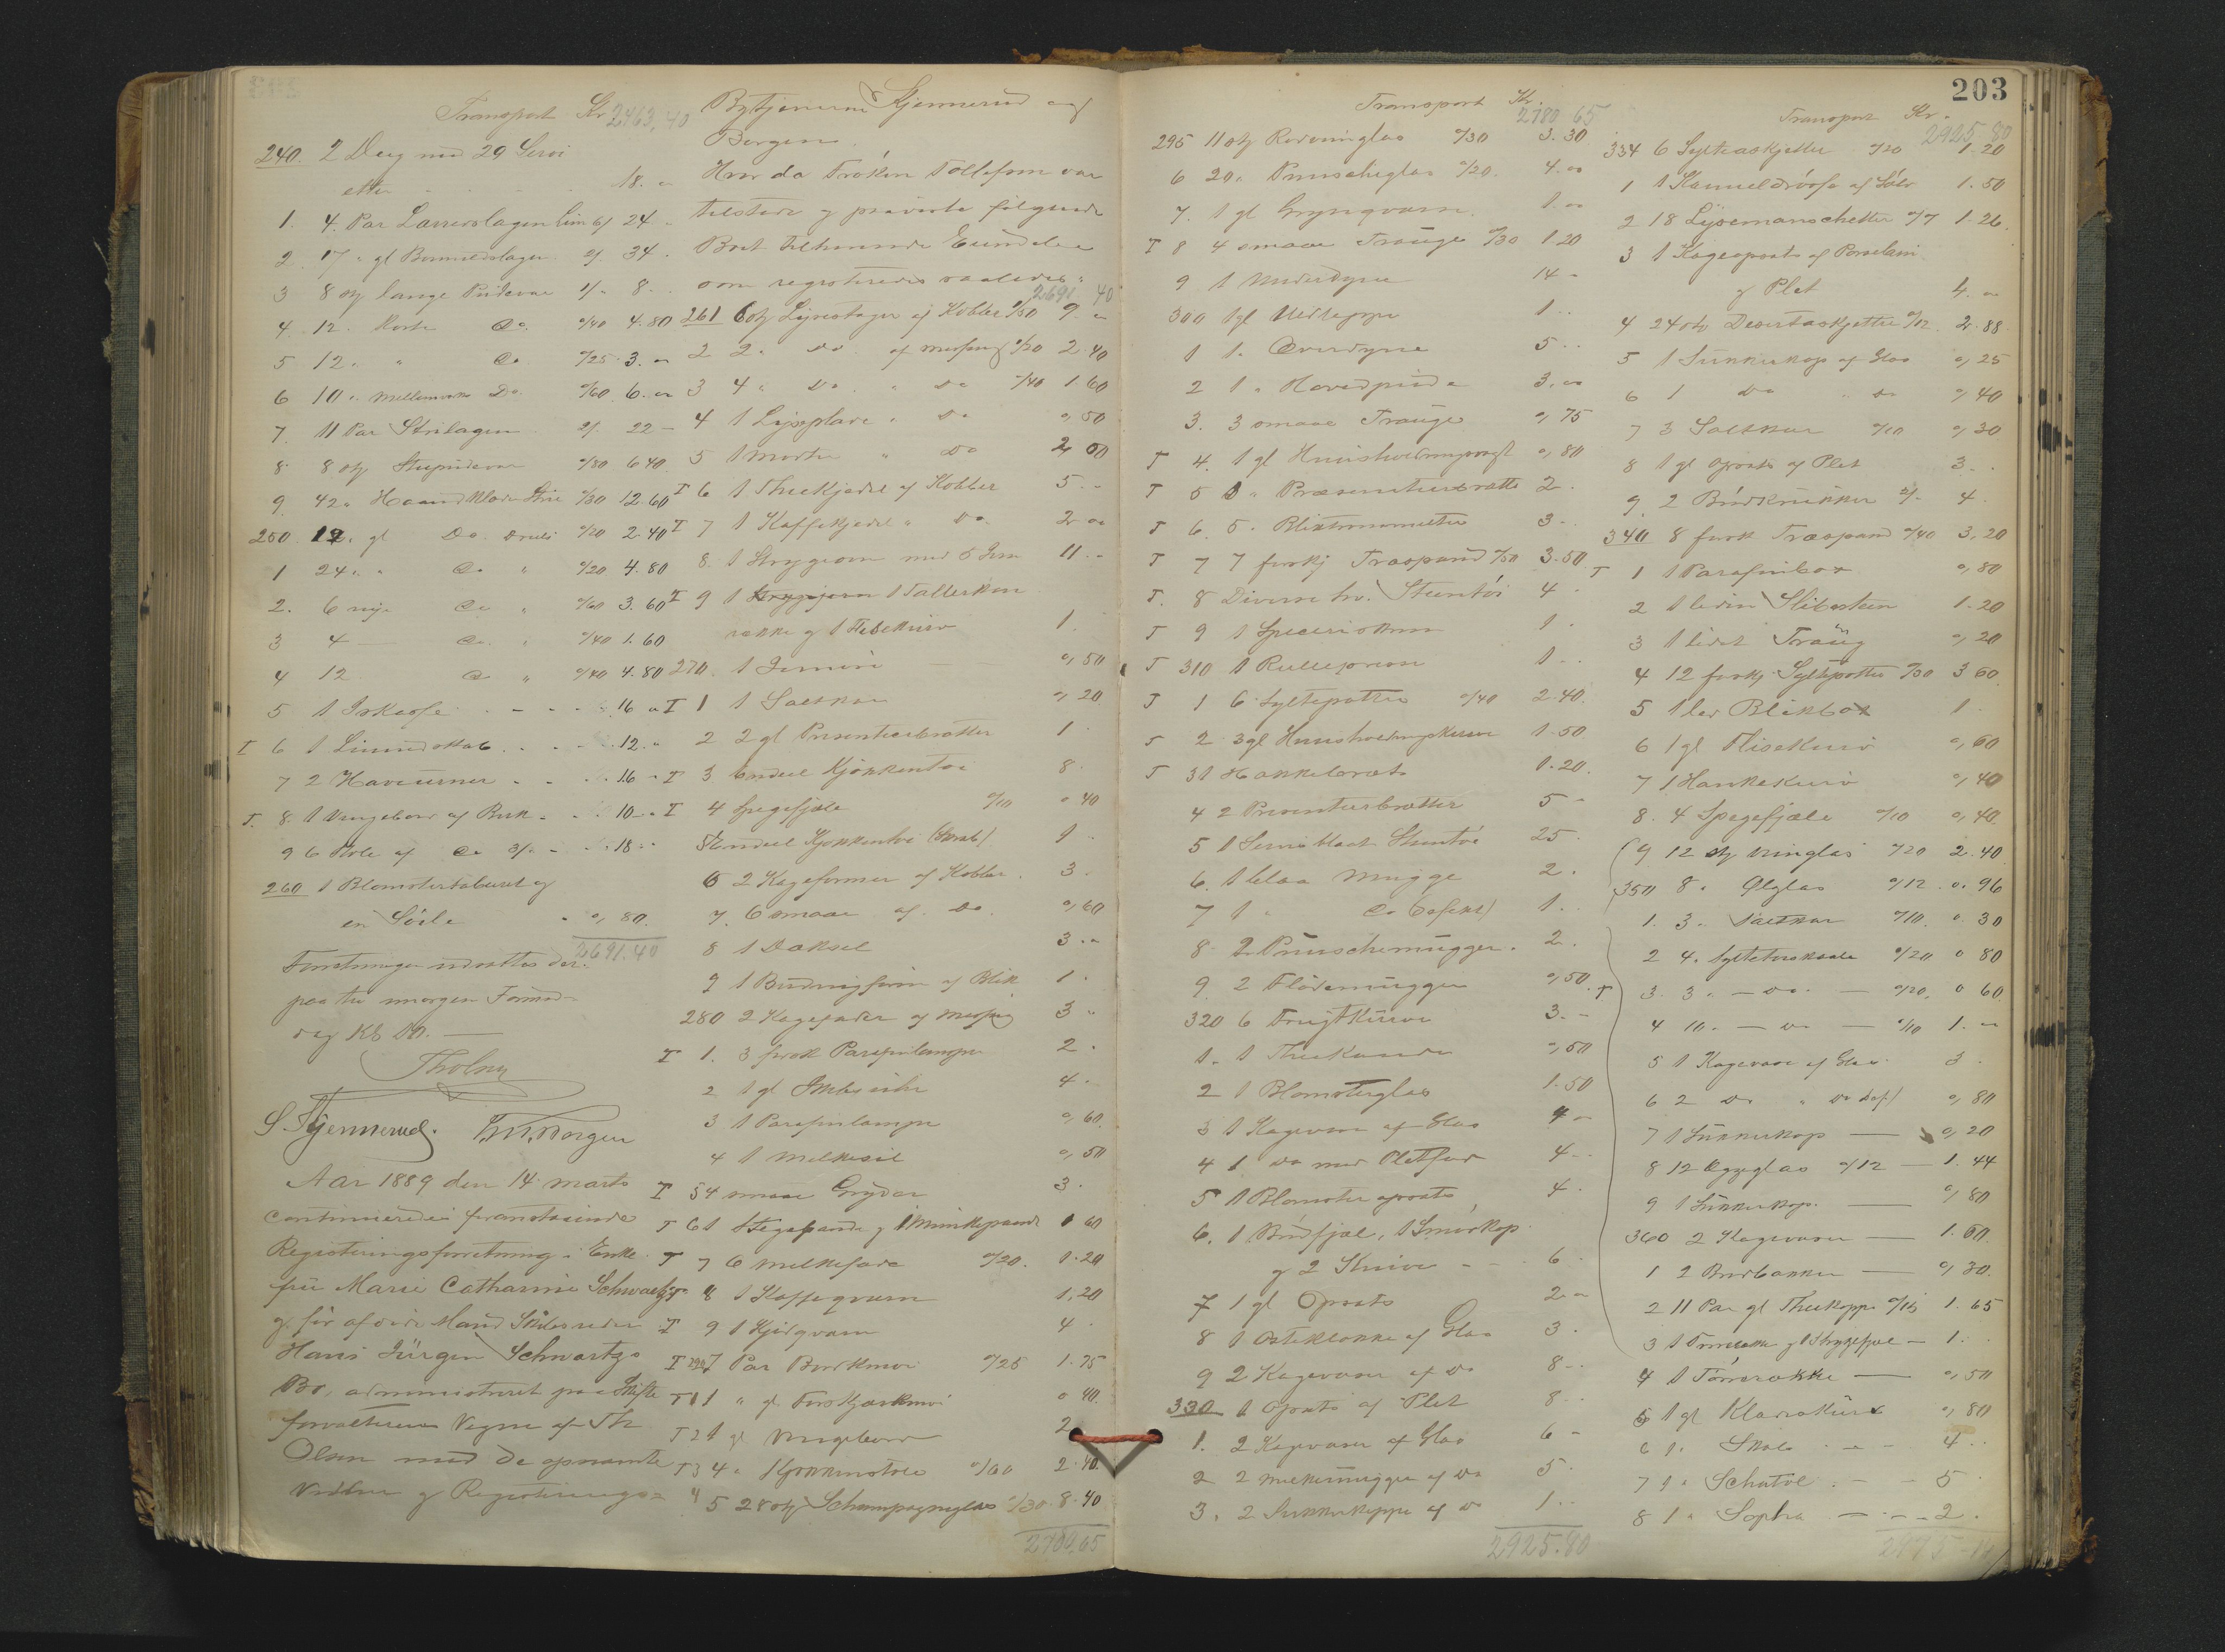 Transport Kr 2463,40
240. 2 Dug med 29 Servi
etter 18.
1. 4. Par Lærredslagen 6/ 24 -
2 17 " gl Bomuldslagen 2/. 34.
3 8 stk lange Pudevar 1/- 8.
4. 12. Korte Do. 0/40 4.80
5 12. " Do 0/25 3.
6 10 " Mellemværks Do. 0/60 6.
7. 11 Par Strilagen 2/. 22 -
8 8 stk Pudevar 0/80 6.40
9. 42 " Haandklæder 0/30 12.60
250. 12. gl Do. Dreils 0/20 2.40
1 24 " " Do " 0/20 4.80
2. 6 nye Do " 0/60 3.60
3 4 — Do. " 0/40 1.60
4 12 Do " 0/40 4.80
5 1 Iskasse 16
T 6 1 Linnedskab 12.
7 2 Haveurner 16 -
T. 8. 1 Vrengebord af Birk 10 -
9 6 Stole af Do 3/. 18
260 1 Blomstertaburet og
en Söile 0,80.
2691.40
Forretningen udsattes der-
paa til imorgen Formid-
dag Kl 10. —
S. Gjennerud.
Aar 1889 den 14 marts
continueredes foranstaaende
Registreringsforretning i Enke-
fru Marie Catharine Schwartz
og för afdöde Mand Skibsreder
Hans Jürgen Schwartzs
Bo, administreret paa Skifte
forvalterens Vegne af Th
Olsen med de opnævnte
Vidner og Registrerings-
Bytjenerne Gjennerud og
Borgen.
Hvor da Fröken Tollefsen var
tilstede og paaviste fölgende
Boet tilhörende Eiendele
som registreredes saaledes:
2691 40
261 6 stk Lysestager af Kobber 1/50 9.
2 2. Do. af messing 1/20 2.40
3 4 " Do. " Do 0/40 1.60
4 1 Lyseplade " Do 0,50
5 1 Morter " Do 2,00
T 6 1 Theekjedel af Kobber 5.-
T 7 1 Kaffekjedel " Do. 2
8. 1 Strygeovn med 5 Jern 11.-
T 9 1 Strygejern 1 Tallerken
række og 1 Fiskekurv 1.
270. 1 0,50
T 1 1 Saltkar 0,20
2 2 gl Presenteerbretter 1
T 3 Endeel Kjökkentöi 8.
T 4 Spegefjæle 0/10 0 40
5 Endeel Kjökkentöi 1
6 2 Kageformer af Kobber. 3.
7. 6 smaae af. Do. 0,60
8 1 Dæksel 3.
9 1 Budingform af Blik 1.
280 2 Kagefade af Messing 3
T 1. 3 forsk Parafinlamper 2.
2 1 gl 4.
3 1 Parafinlampe 0,60.
4 1 Melkesil 0,50
T 5 4 smaae Gryder 3.
T 6 1 Stegepande og 1 Munkepande 1 60
T 7 6 Melkefade 0/20. 1.20
T 8 1 Kaffeqværn 1,20
T 9 1 Kjödqværn 4.
T 290 7 Par Bordkniver 0/25 1.75
T 1 1 " gl Forskjærkniv 0 40.
T 2 1 gl Vrengebord 2
T 3 4 " Kjökkenstole 0/60 2.40.
5 28 stk Schampagneglas 0/30 8.40
2780.65
Transport Kr.
2780 65
295 11 stk Rödvinglas 0/30 3.30
6 20 " Punscheglas 0/20. 4.
7. 1 gl Grynqværn. 1.
T 8 4 smaae Trauge 0/30 1 20
9 1 Underdyne 14 -
300 1 gl 1..
1 1. Overdyne 5..
2 1 " Hovedpude 3.
3. 3 smaae Trauge 0,75
T 4. 1 gl Huusholdningsvægt 0,80
T 5 " Præsenteerbræt 2.
T 6. 5. 3 -
T 7 7 forskj Træspand 0/50 3.50
T. 8 Diverse hv. Steentöi 4.
T 9 1 1.
T 310 1 Rullepresse 1..
T 1 6 Syltepotter 0/40 2.40.
T 2 3 gl Huusholdningskurve 1.50.
T 3 1 Hakkebræt 1.20.
4 2 Presenteerbretter 5 -
5 1 Servi blaat Steentöi 25.
6. 1 blaa Mugge 2.
7 1 " Do 1..
8. 2 Punschemugger. 2.
9 2 Flödemugger 0,50.
320 6 Frugtkurve 3.-
1. 1 Theekande 0,50
2 1 Blomsterglas 1.50
3 1 Kagevase af Glas 4 -
4 1 Do med Pletfod 4..
5 1 Blomsteropsats 4.
6. 1 Brödfjæl, 1 Smörkop
og 2 Knive 6.
7 1 gl Opsats 2.
8 1 Osteklokke af Glas 3.
9 2 Kagevaser af Do 8..
330 1 Opsats af Plet 8..
1. 2 Kagevaser af Glas 6 -
2 2 Melkemugger af Do 5.
3. 2 Sukkerkopper af Do 1..
2925.80
203
Transport Kr.
2925.80
334 6 Syltetöiskjeller 0/20 1.20
1 1 Kaneeldaase af Sölv 1.50
2 18 Lysemanschetter 0/7 1.26.
3 1 Kageopsats af Porcelain
og Plet 4.
4 24 stk Desertaskjetter 0/12 2.88.
5 1 Sukkerkop af Glas 0,25
6 1 Do " Do 0,40
7 3 Saltkar 0/10 0,30
8 1 gl Opsats af Plet 3..
9. 2 Brödkrukker 2/- 4.
340 8 forsk Træspand 0/40 3,20
T 1 1 Parafinbox 0,80
2 1 liden Slibesteen 1.20
3 1 lidet Traug 0,20
4 12 forskj. Syltepotter 0/30 3 60
5 1 Blikbox 1.
6 1 gl Flisekurv 0,60
7 1 Hankekurv 0,40
8. 4 Spegefjæle 0/10 0,40.
9 12 stk Vinglas 0/20 2.40
350 8 " Ølglas 0/12 0.96
1. 3. Saltkar 0/10. 0.30
2 4. Syltetöiskaale 0/20 0 80
T 3. 3 " — Do — 0/20. 0 60.
4 10. — Do — 0/10 1.
5 1 Kagevase af Glas. 3.
6 2 Do " Do 0,80
7 1 Sukkerkop — 0,20
8 12 Æggeglas 0/12 — 1.44
9 1 Sukkerkop. — 0,80
360 2 Kagevaser — 1.60.
1 2 Brödbakker — 0,30.
2 11 Par gl Theekopper 0/15 1.65
3 1 og 1 Strygefjæl — 1.
4 1 Törrerække — 0,50
5 1 gl Klædeskurv 0,80
6 1. Skab - - 4..
7 1 " Schatol - - 5
8 1 " Sopha - - 2.